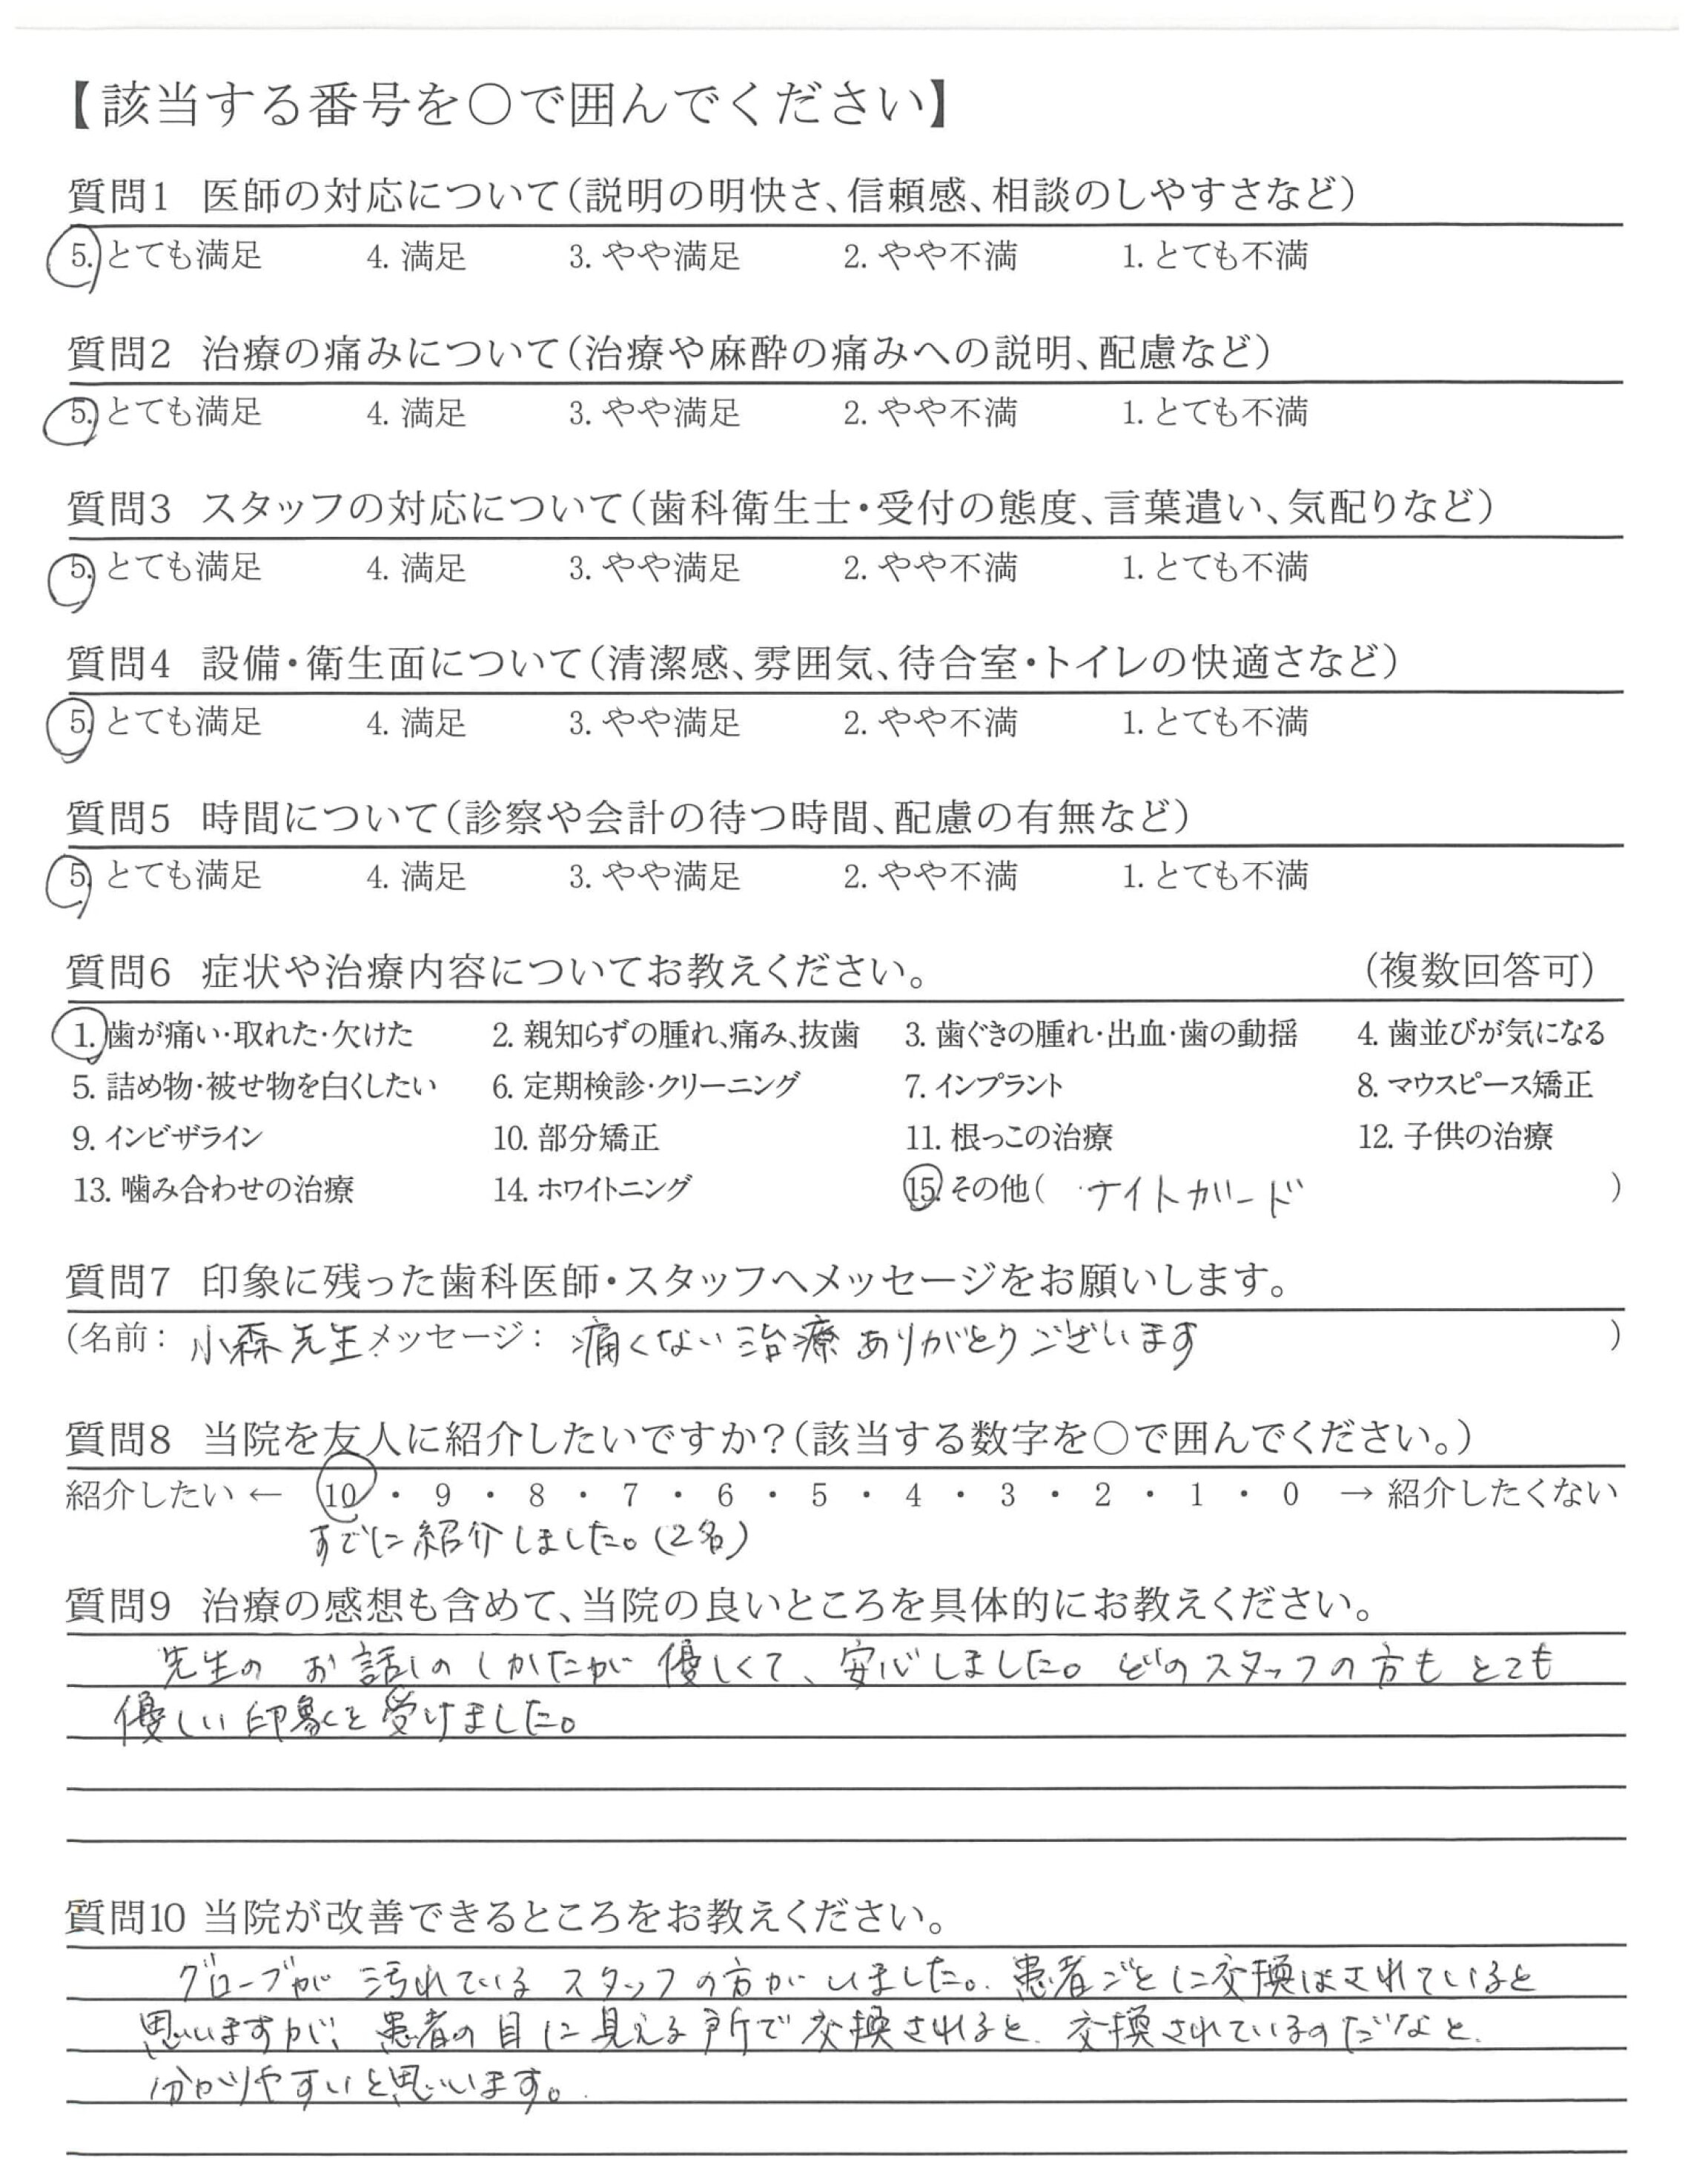 【該当する番号を○で囲んでください】
質問1 医師の対応について(説明の明快さ、信頼感、相談のしやすさなど)
5. とても満足 4. 満足 3. やや満足 2. やや不満 1. とても不満
質問2 治療の痛みについて(治療や麻酔の痛みへの説明、配慮など)
5. とても満足 4. 満足 3. やや満足 2. やや不満 1. とても不満
質問3 スタッフの対応について(歯科衛生士・受付の態度、言葉遣い、気配りなど)
5. とても満足 4. 満足 3. やや満足 2. やや不満 1. とても不満
質問4 設備・衛生面について(清潔感、雰囲気、待合室・トイレの快適さなど)
5. とても満足 4. 満足 3. やや満足 2. やや不満 1. とても不満
質問5 時間について(診察や会計の待つ時間、配慮の有無など)
5. とても満足 4. 満足 3. やや満足 2. やや不満 1. とても不満
質問6 症状や治療内容についてお教えください。 (複数回答可)
1. 歯が痛い・取れた・欠けた 2. 親知らずの腫れ、痛み、抜歯 3. 歯ぐきの腫れ・出血・歯の動揺 4. 歯並びが気になる
5. 詰め物・被せ物を白くしたい 6. 定期検診・クリーニング 7. インプラント 8. マウスピース矯正
9. インビザライン 10. 部分矯正 11. 根っこの治療 12. 子供の治療
13. 噛み合わせの治療 14. ホワイトニング 15. その他( ナイトガード )
質問7 印象に残った歯科医師・スタッフへメッセージをお願いします。
(名前: 小森先生 メッセージ: 痛くない治療ありがとうございます )
質問8 当院を友人に紹介したいですか?(該当する数字を○で囲んでください。)
紹介したい ← 10 ・ 9 ・ 8 ・ 7 ・ 6 ・ 5 ・ 4 ・ 3 ・ 2 ・ 1 ・ 0 → 紹介したくない
すでに紹介しました。(2名)
質問9 治療の感想も含めて、当院の良いところを具体的にお教えください。
先生の お話しのしかたが 優しくて、安心しました。どのスタッフの方も とても
優しい印象を受けました。
質問10 当院が改善できるところをお教えください。
グローブが 汚れている スタッフの方がいました。患者ごとに交換はされていると
思いますが、患者の目に見える所で交換されると、交換されているのだなと、
分かりやすいと思います。